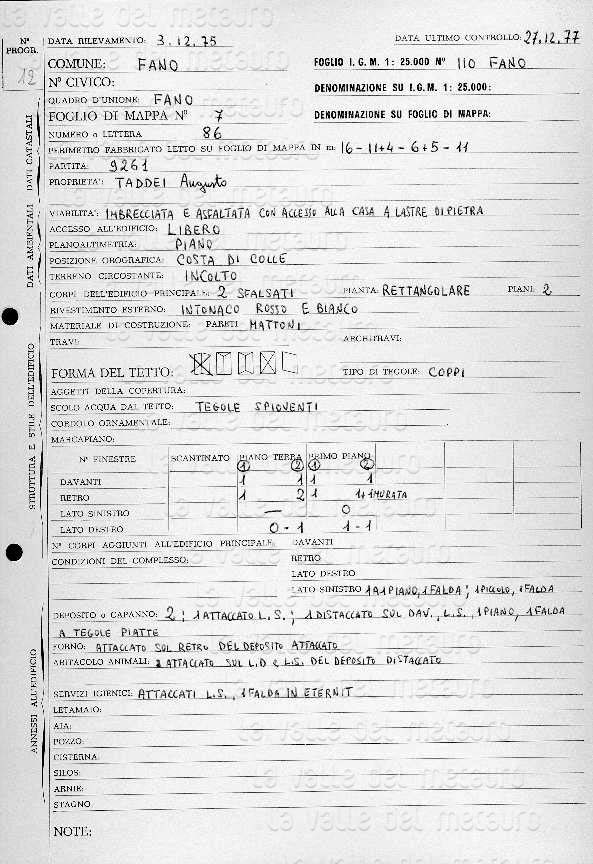 Nº PROGR. 12
DATA RILEVAMENTO: 3.12.75 DATA ULTIMO CONTROLLO: 27.12.77
COMUNE: FANO FOGLIO I.G.M. 1:25.000 Nº 110 FANO
Nº CIVICO: DENOMINAZIONE SU I.G.M. 1:25.000:
QUADRO D'UNIONE: FANO
FOGLIO DI MAPPA Nº 7 DENOMINAZIONE SU FOGLIO DI MAPPA:
NUMERO o LETTERA 86
PERIMETRO FABBRICATO LETTO SU FOGLIO DI MAPPA IN m: 16-11+4-6+5-11
PARTITA: 9261
PROPRIETA': TADDEI Augusto
DATI CATASTALI
VIABILITA': IMBRECCIATA E ASFALTATA CON ACCESSO ALLA CASA A LASTRE DI PIETRA
ACCESSO ALL'EDIFICIO: LIBERO
PLANOALTIMETRIA: PIANO
POSIZIONE OROGRAFICA: COSTA DI COLLE
TERRENO CIRCOSTANTE: INCOLTO
DATI AMBIENTALI
CORPI DELL'EDIFICIO PRINCIPALE: 2 SFALSATI PIANTA: RETTANGOLARE PIANI: 2
RIVESTIMENTO ESTERNO: INTONACO ROSSO E BIANCO
MATERIALE DI COSTRUZIONE: PARETI MATTONI
TRAVI: ARCHITRAVI:
FORMA DEL TETTO: TIPO DI TEGOLE: COPPI
AGGETTI DELLA COPERTURA:
SCOLO ACQUA DAL TETTO: TEGOLE SPIOVENTI
CORDOLO ORNAMENTALE:
MARCAPIANO:
STRUTTURA E STILE DELL'EDIFICIO
Nº FINESTRE SCANTINATO PIANO TERRA PRIMO PIANO
1 2 1 2
DAVANTI 1 1 1 1
RETRO 1 2 1 1+1MURATA
LATO SINISTRO — 0
LATO DESTRO 0-1 1-1
Nº CORPI AGGIUNTI ALL'EDIFICIO PRINCIPALE: DAVANTI
CONDIZIONI DEL COMPLESSO: RETRO
LATO DESTRO
LATO SINISTRO 1 A 1 PIANO, 1 FALDA; 1 PICCOLO, 1 FALDA
DEPOSITO o CAPANNO: 2; 1 ATTACCATO L.S.; 1 DISTACCATO SUL DAV., L.S., 1 PIANO, 1 FALDA
A TEGOLE PIATTE
FORNO: ATTACCATO SUL RETRO DEL DEPOSITO ATTACCATO
ABITACOLO ANIMALI: 2 ATTACCATO SUL L.D e L.S. DEL DEPOSITO DISTACCATO
SERVIZI IGIENICI: ATTACCATI L.S., 1 FALDA IN ETERNIT
LETAMAIO:
AIA:
POZZO:
CISTERNA:
SILOS:
ARNIE:
STAGNO
ANNESSI ALL'EDIFICIO
NOTE:
la valle del metauro